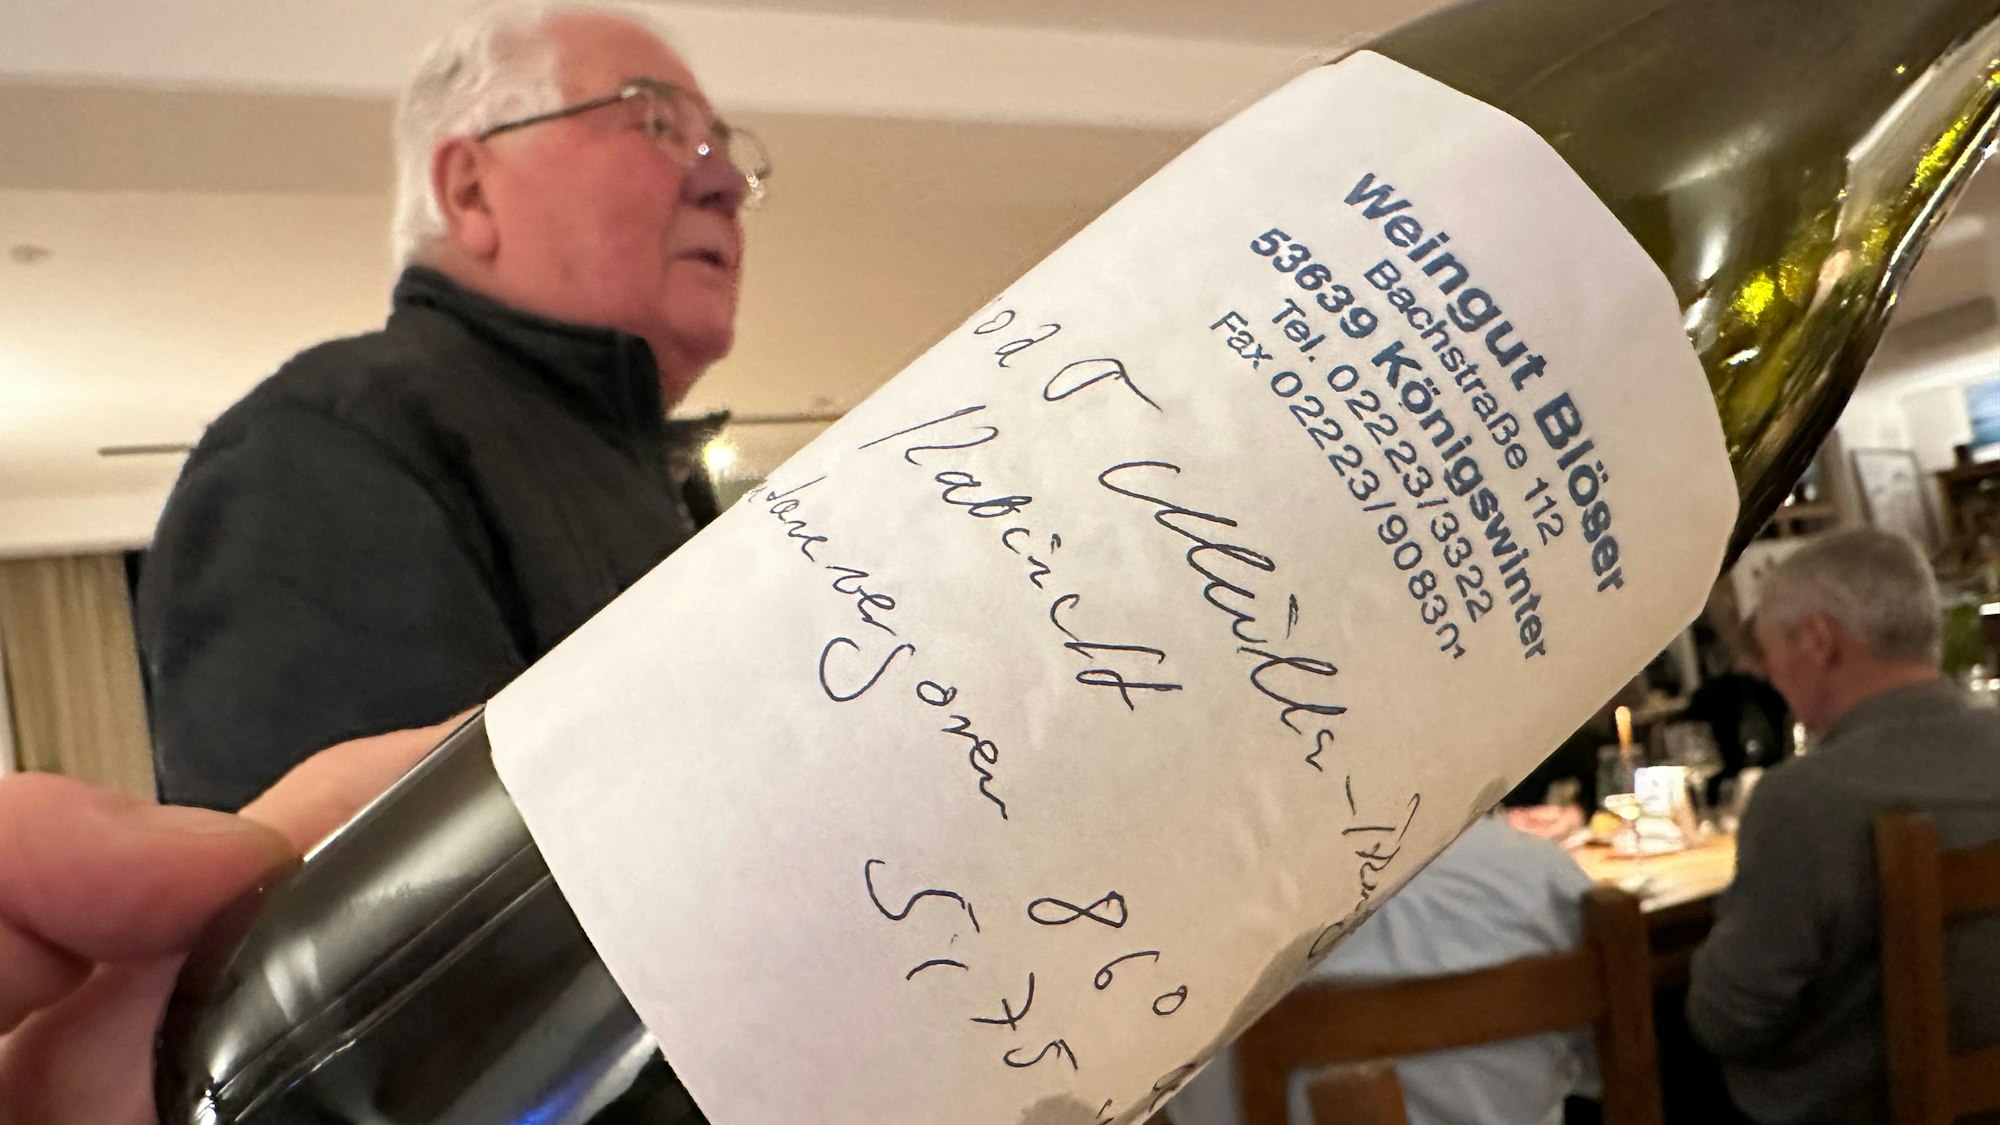 Weingut Blöser
Bachstraße 112
53639 Königswinter
Tel. 02223/3322
Fax 02223/9083
Müller-
Kabinett
86°
5,75